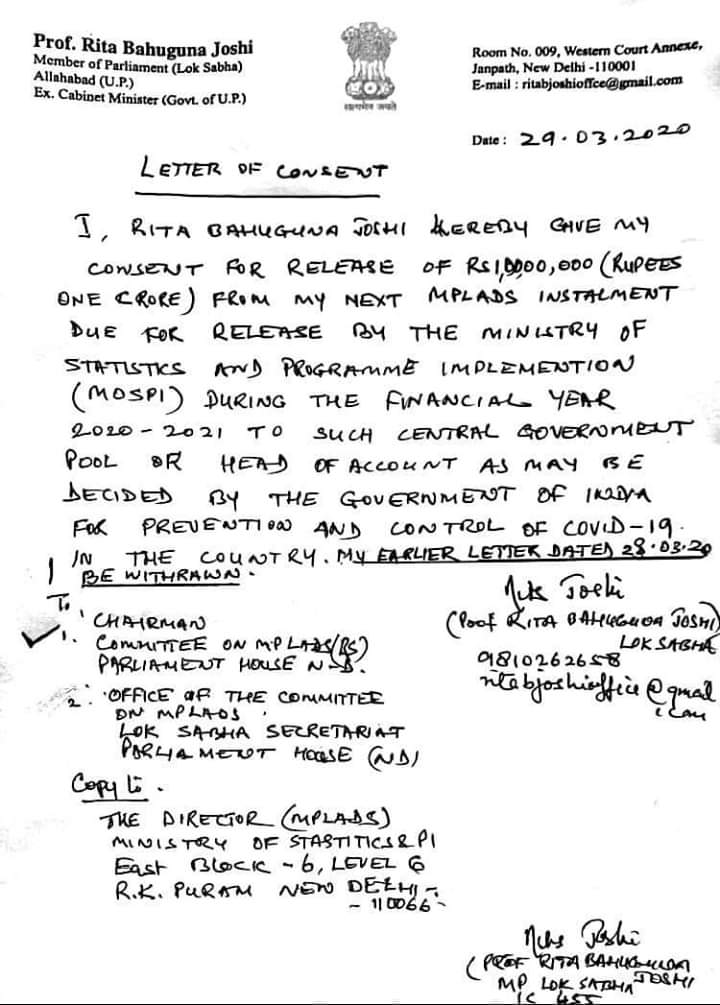 Prof. Rita Bahuguna Joshi
Member of Parliament (Lok Sabha)
Allahabad (U.P.)
Ex. Cabinet Minister (Govt. of U.P.)
सत्यमेव जयते
Room No. 009, Western Court Annexe,
Janpath, New Delhi -110001
E-mail : ritabjoshioffce@gmail.com
Date : 29.03.2020
LETTER OF CONSENT
I, RITA BAHUGUNA JOSHI HEREBY GIVE MY
CONSENT FOR RELEASE OF RS 1,0000,000 (RUPEES
ONE CRORE) FROM MY NEXT MPLADS INSTALMENT
DUE FOR RELEASE BY THE MINISTRY OF
STATISTICS AND PROGRAMME IMPLEMENTION
(MOSPI) DURING THE FINANCIAL YEAR
2020-2021 TO SUCH CENTRAL GOVERNMENT
POOL OR HEAD OF ACCOUNT AS MAY BE
DECIDED BY THE GOVERNMENT OF INDIA
FOR PREVENTION AND CONTROL OF COVID-19.
IN THE COUNTRY. MY EARLIER LETTER DATED 28.03.20
BE WITHDRAWN.
Joshi
(Prof RITA BAHUGUNA JOSHI)
LOK SABHA
9810262658
ritabjoshioffice@gmail
.com
To
1. CHAIRMAN
COMMITTEE ON MPLADS (RS)
PARLIAMENT HOUSE N-D.
2. OFFICE OF THE COMMITTEE
ON MPLADS
LOK SABHA SECRETARIAT
PARLIAMENT HOUSE (ND)
Copy to .
THE DIRECTOR (MPLADS)
MINISTRY OF STASTITICS & PI
East BLOCK - 6, LEVEL 6
R.K. PURAM NEW DELHI -
- 110066 -
Joshi
(PROF RITA BAHUGUNA
JOSHI
MP LOK SABHA
IC 455